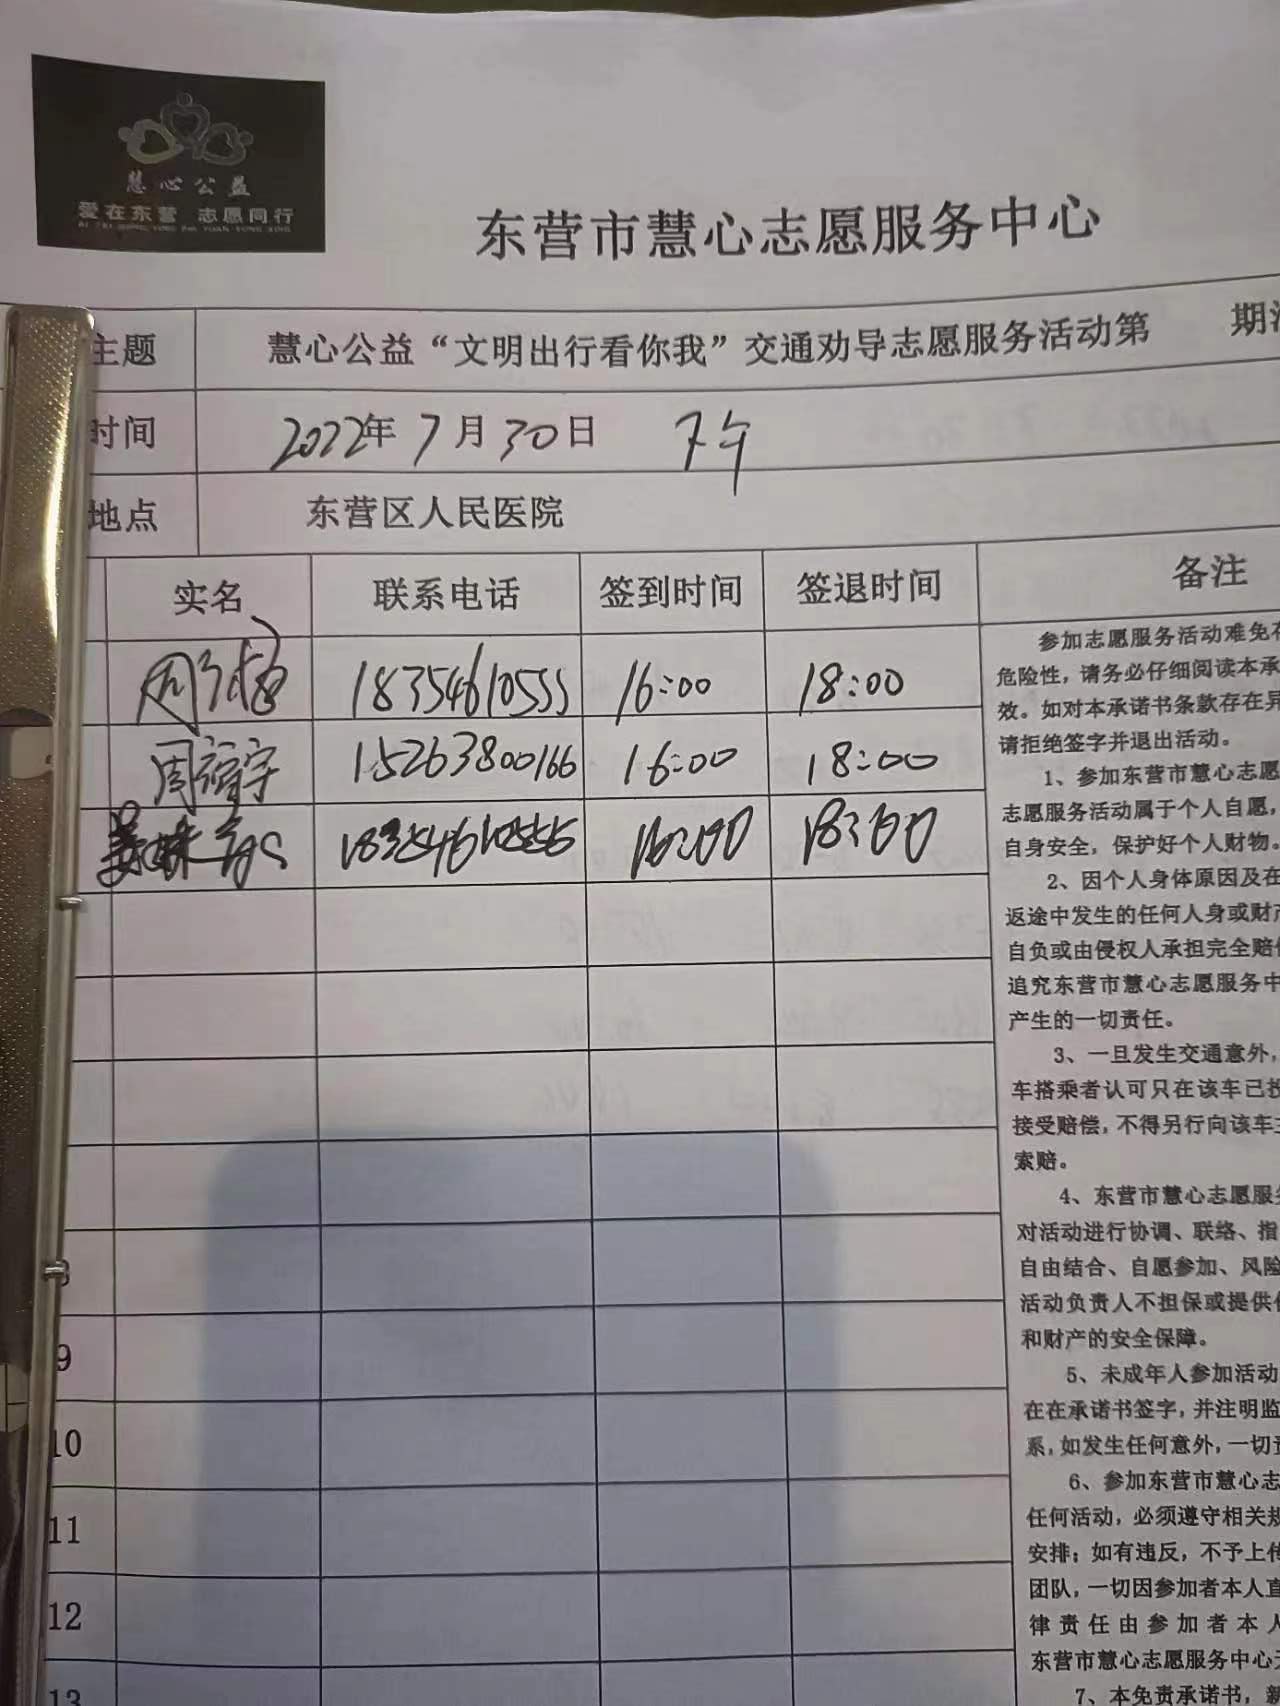 慧心公益
爱在东营 志愿同行
东营市慧心志愿服务中心
主题 慧心公益“文明出行看你我”交通劝导志愿服务活动第 期
时间 2022年7月30日 下午
地点 东营区人民医院
实名 联系电话 签到时间 签退时间 备注
18354610555 16:00 18:00
周 宇 15263800166 16:00 18:00
姜 16:00 18:00
参加志愿服务活动难免
危险性，请务必仔细阅读本承
效。如对本承诺书条款存在异
请拒绝签字并退出活动。
1、参加东营市慧心志愿
志愿服务活动属于个人自愿，
自身安全，保护好个人财物。
2、因个人身体原因及在
返途中发生的任何人身或财产
自负或由侵权人承担完全赔
追究东营市慧心志愿服务中
产生的一切责任。
3、一旦发生交通意外，
车搭乘者认可只在该车已投
接受赔偿，不得另行向该车
索赔。
4、东营市慧心志愿服
对活动进行协调、联络、指
自由结合、自愿参加、风险
活动负责人不担保或提供
和财产的安全保障。
5、未成年人参加活动
在在承诺书签字，并注明监
系，如发生任何意外，一切
6、参加东营市慧心志
任何活动，必须遵守相关规
安排；如有违反，不予上传
团队，一切因参加者本人直
律责任由参加者本人
东营市慧心志愿服务中心
7、本免责承诺书，
9
10
11
12
13